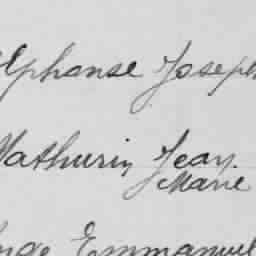 Alphonse Joseph
Mathurin Jean
Marie
Emmanuel